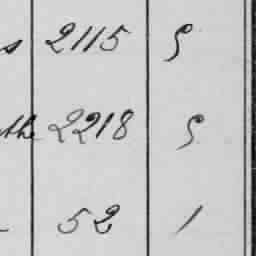 s 2115 9
the 2218 9
52 1